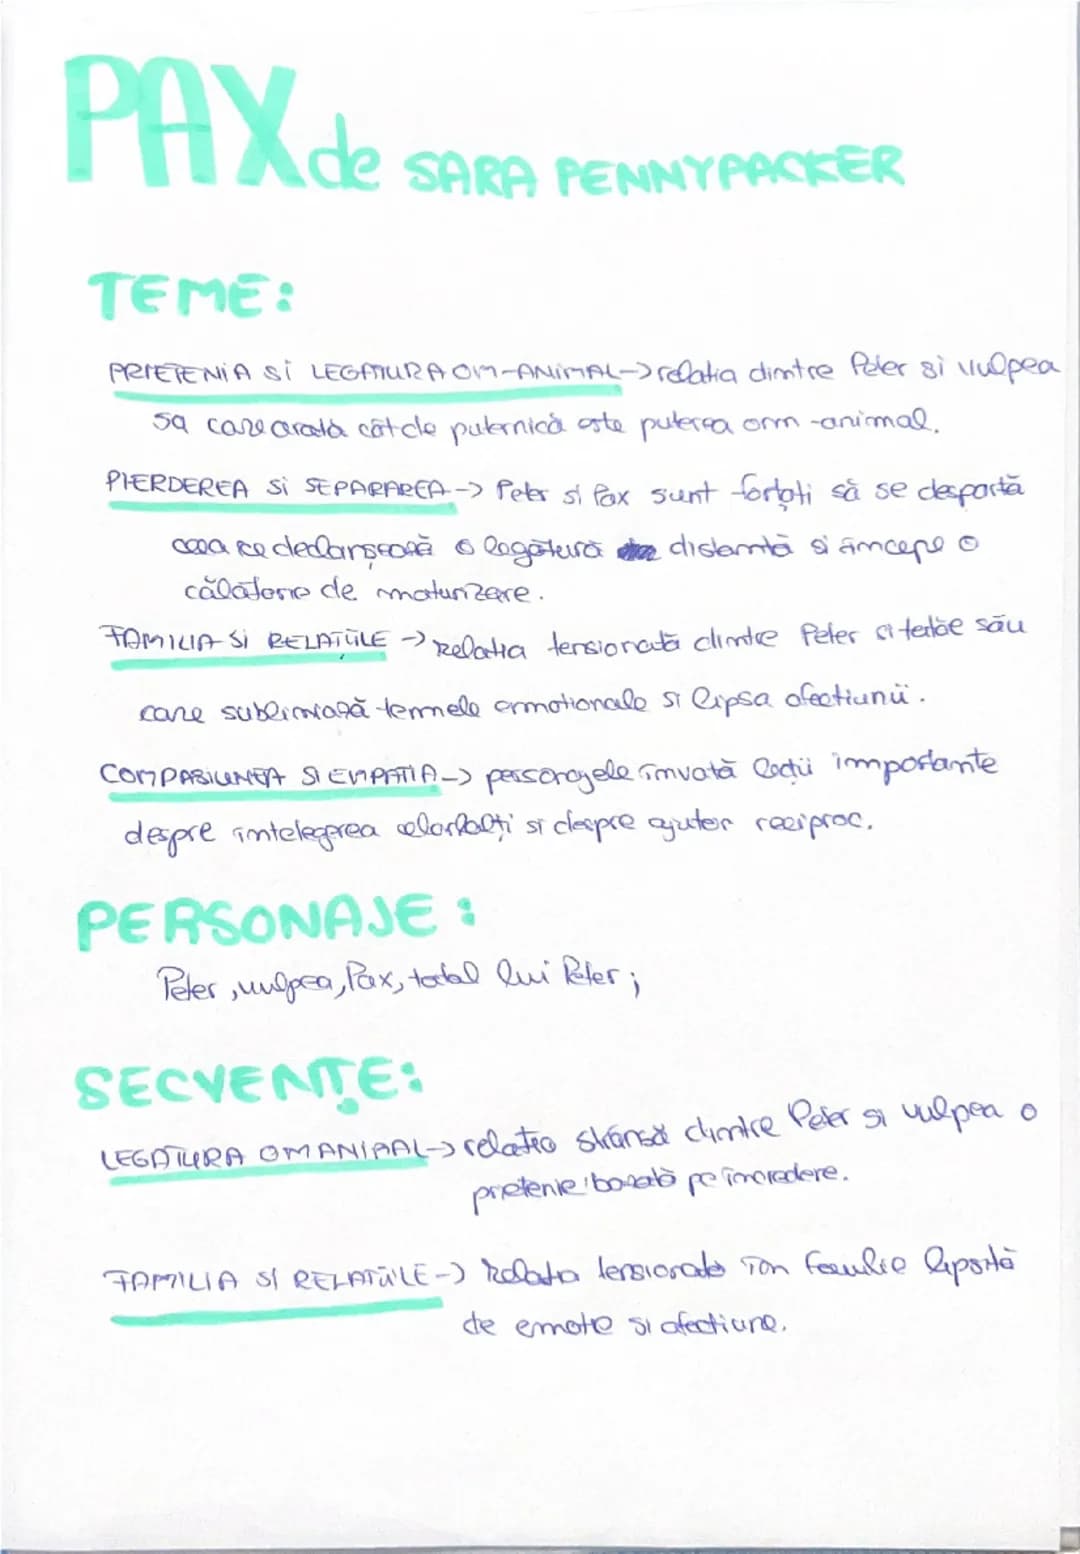 PAX de SARA PENNYPACKER
TEME:
PRIETENIA SI LEGATURA OM-ANIMAL -> relatia dimtre Peter si vulpea
sa care arată cât de puternică este puterea om-animal.
PIERDEREA SI SEPARAREA -> Peter si Pax sunt fortați să se despartă
ceea ce declanșează o legătură distantă si începe o
călătorie de maturizare.
FAMILIA SI RELATIILE -> Relatia tensionată dimtre Peter si tatăl său
care subliniază temele emotionale si lipsa afectiunii.
COMPASIUNEA SI EMPATIA -> personajele învată lectii importante
despre intelegerea celorlalți si despre ajutor reciproc.
PERSONAJE:
Peter, vulpea, Pax, tatal lui Peter;
SECVENȚE:
LEGATURA OM ANIMAL -> relatia strânsă dimtre Peter si vulpea o
prietenie bazată pe încredere.
FAMILIA SI RELATIILE -> Relatia tensionată în familie lipsită
de emotie si afectiune.